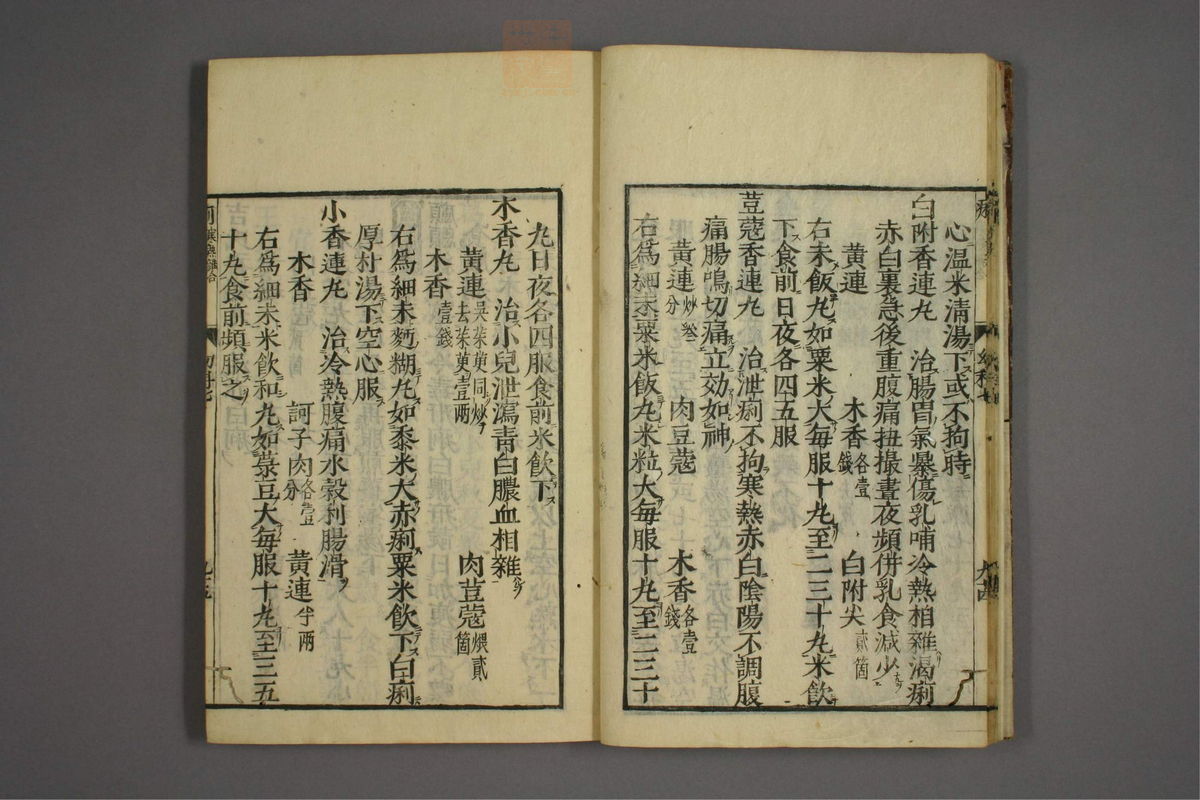 心温米清湯下或不拘時
白附香連丸　治腸胃氣暴傷乳哺冷熱相雜瀉痢
赤白裏急後重腹痛扭撮晝夜頻併乳食減少
黄連　木香各壹錢　白附尖貳箇
右末飯丸如粟米大每服十丸至二三十丸米飲
下食前日夜各四五服
荳蔻香連丸　治泄痢不拘寒熱赤白陰陽不調腹
痛腸鳴切痛立効如神
黄連炒叁分　肉豆蔻　木香各壹錢
右爲細末粟米飯丸米粒大每服十丸至二三十
丸日夜各四服食前米飲下
木香丸　治小兒泄瀉青白膿血相雜
黄連吳茱萸同炒去茱萸壹兩　肉荳蔻煨貳箇
木香壹錢
右爲細末麪糊丸如黍米大赤痢粟米飲下白痢
厚朴湯下空心服
小香連丸　治冷熱腹痛水穀利腸滑
木香　訶子肉各壹分　黄連半兩
右爲細末米飲和丸如菉豆大每服十丸至三五
十丸食前頻服之